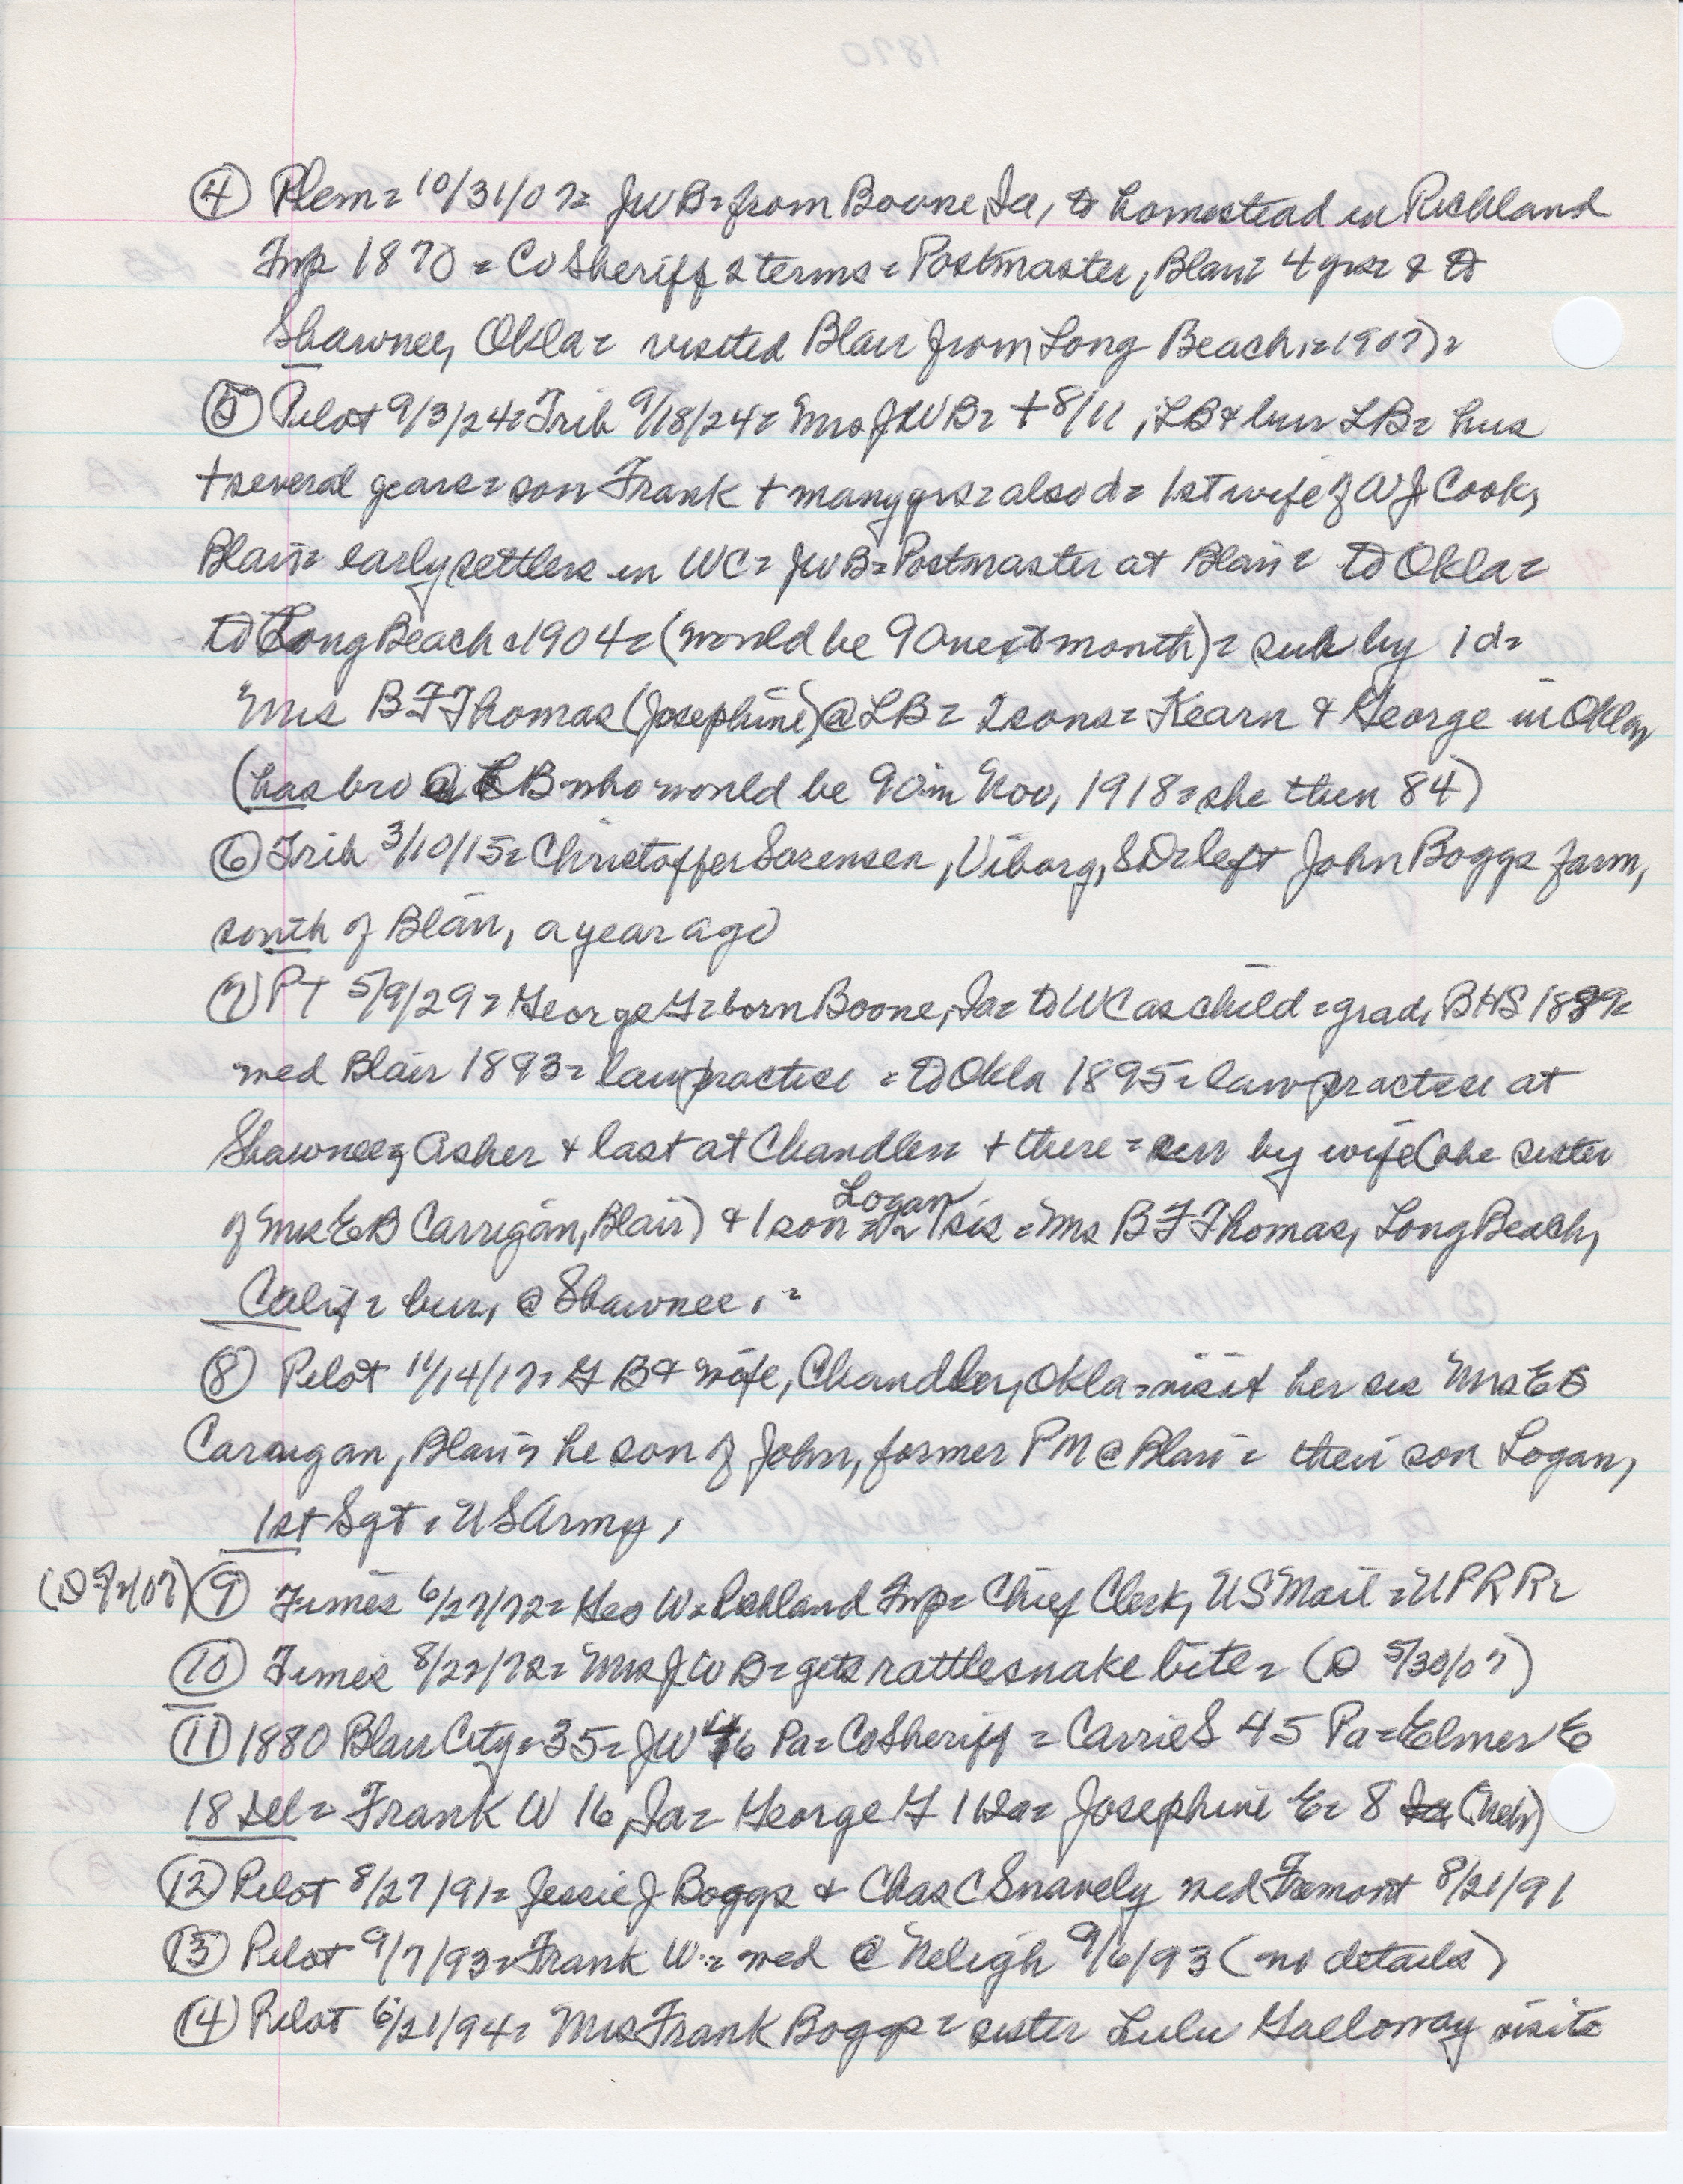 ④ Plem = 10/31/07 = JWB = from Boone, Ia, to homestead in Richland
Twp 1870 = Co Sheriff 2 terms = Postmaster, Blair = 4 yrs = & to
Shawnee, Okla = visited Blair from Long Beach, = 1907) =
⑤ Pilot 9/3/24 = Trib 9/18/24 = Mrs JWB = + 8/11, LB & bur LB = hus
+ several years = son Frank + many yrs = also d = 1st wife of W J Cook,
Blair = early settlers in WC = JWB = Postmaster at Blair = to Okla =
to Long Beach 1904 = (would be 90 next month) = sub by 1 d =
Mrs B F Thomas (Josephine) @ LB = 2 sons = Kearn & George in Okla
(has bro @ LB who would be 90 in Nov, 1918 = she then 84)
⑥ Trib 3/10/15 = Christoffer Sorensen, Viborg, SD = left John Boggs farm,
south of Blair, a year ago
⑦ PT 5/9/29 = George G = born Boone, Ia = to WC as child = grad, BHS 1889 =
med Blair 1893 = law practice = to Okla 1895 = law practice at
Shawnee, Asher & last at Chandler = + there = sur by wife (she sister
of Mrs E B Carrigan, Blair) & 1 son = Logan = 1 sis = Mrs B F Thomas, Long Beach,
Calif = bur, @ Shawnee, =
⑧ Pilot 11/14/17 = G B & wife, Chandler, Okla = visit her sis Mrs E B
Carrigan, Blair = he son of John, former PM @ Blair = their son Logan,
1st Sgt, US Army,
⑨ Times 6/27/72 = Geo W = Richland Twp = Chief Clerk, US Mail = UPRR =
⑩ Times 8/22/72 = Mrs JWB = gets rattlesnake bite = (D 5/30/07)
⑪ 1880 Blair City = 35 = JW 46 Pa = Co Sheriff = Carrie S 45 Pa = Elmer E
18 = Frank W 16, Ia = George G = Josephine E = 8 Ia (Neb)
⑫ Pilot 8/27/91 = Jessie J Boggs & Chas C Snavely med Fremont 8/21/91
⑬ Pilot 9/7/93 = Frank W = med @ Neligh 9/6/93 (no details)
⑭ Pilot 6/21/94 = Mrs Frank Boggs = sister Lulu Galloway visits